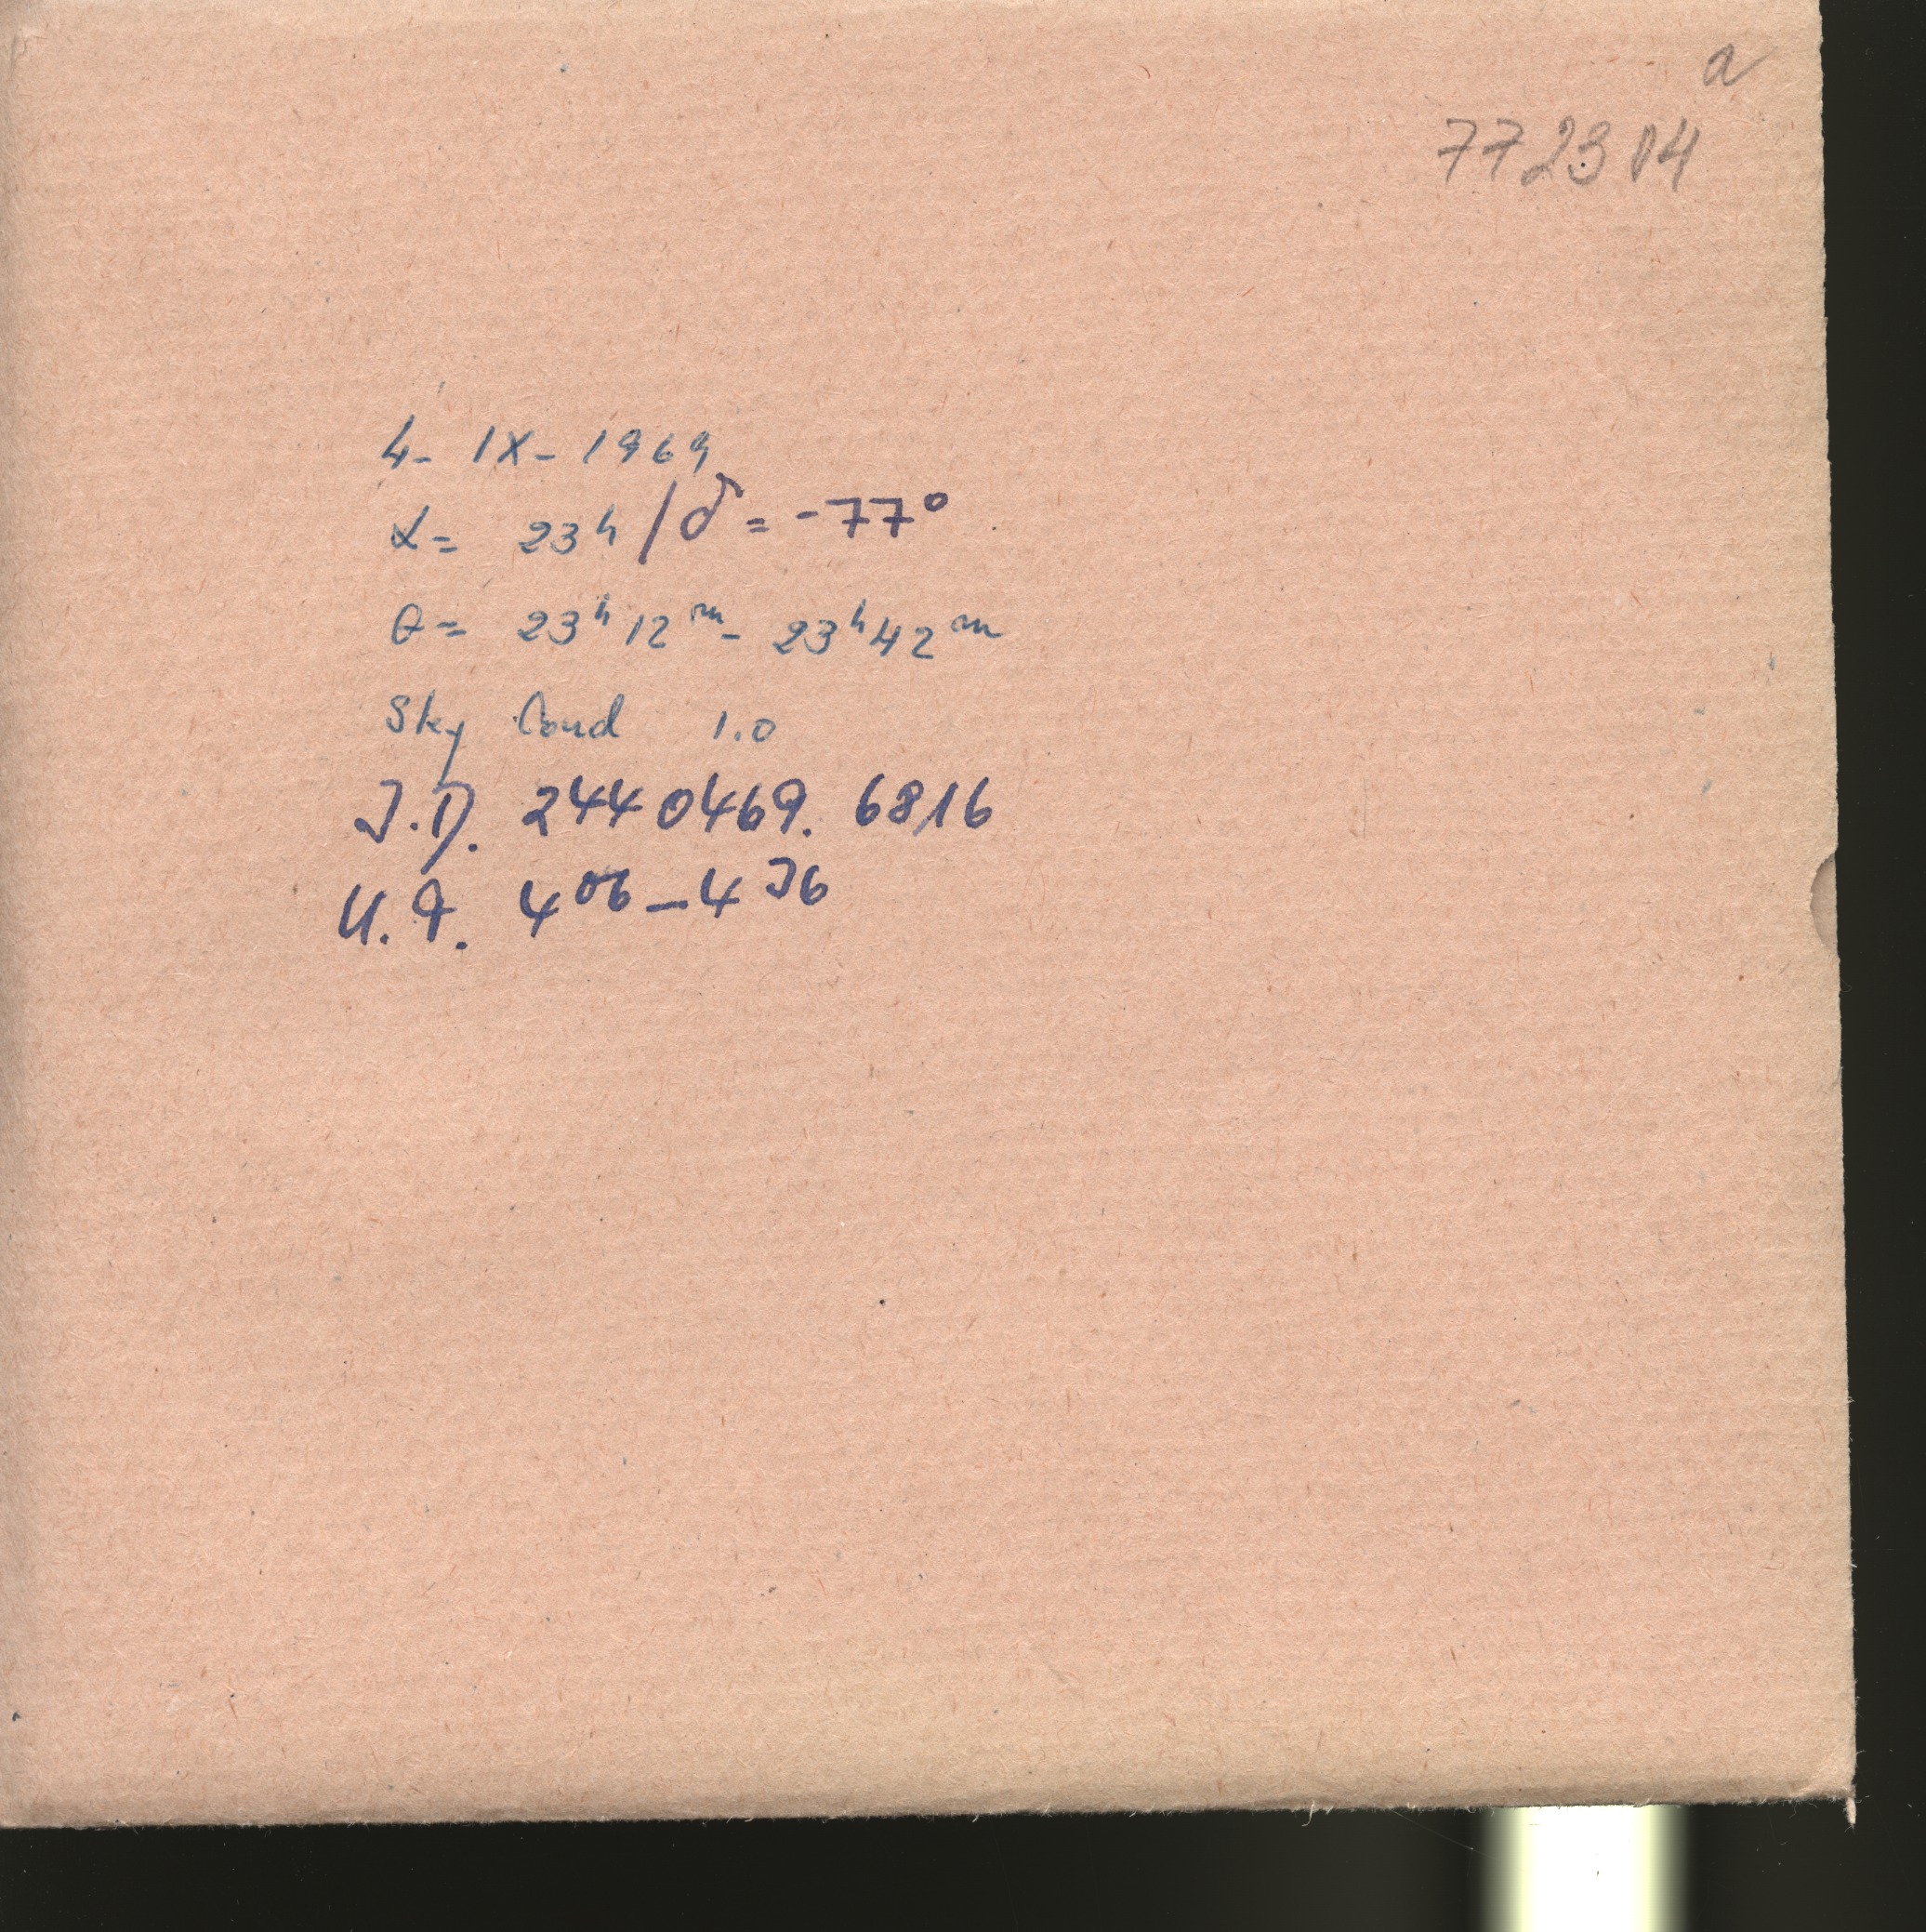 a
772304
4- IX- 1969
α= 23ʰ / δ = -77°
θ= 23ʰ 12ᵐ- 23ʰ 42ᵐ
Sky Cond 1.0
J.D. 2440469. 6816
U.T. 4⁰⁶ – 4³⁶